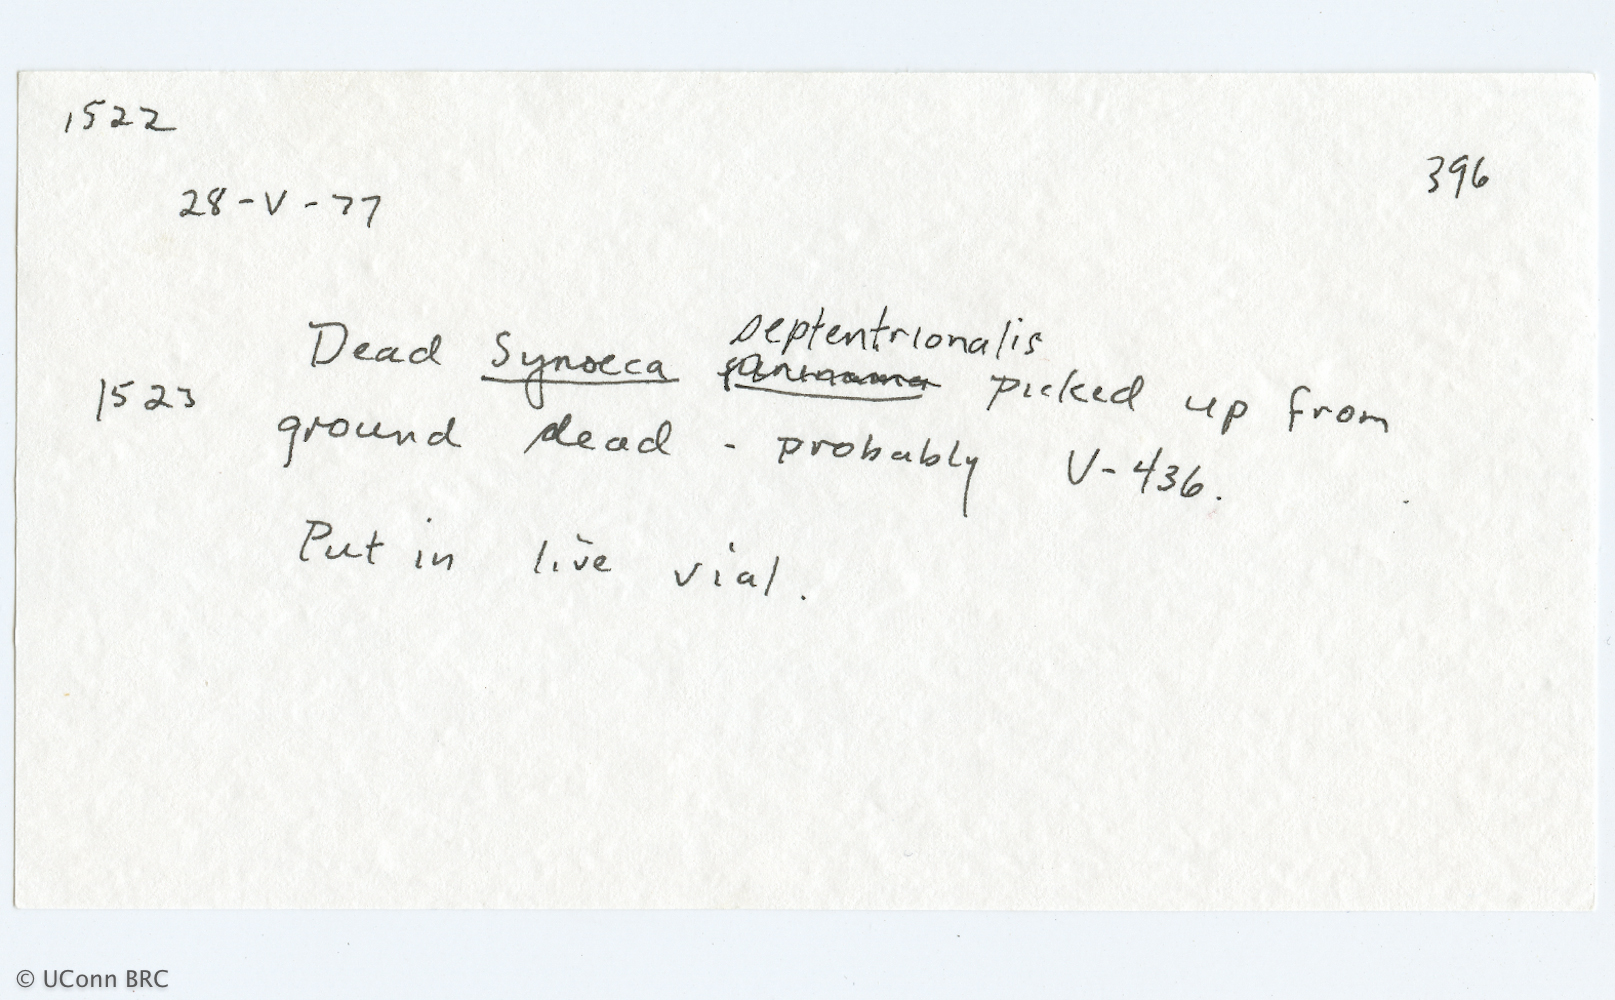 1522
396
28-V-77
septentrionalis
Dead Synoeca picked up from
1523
ground dead - probably V-436.
Put in live vial.
© UConn BRC